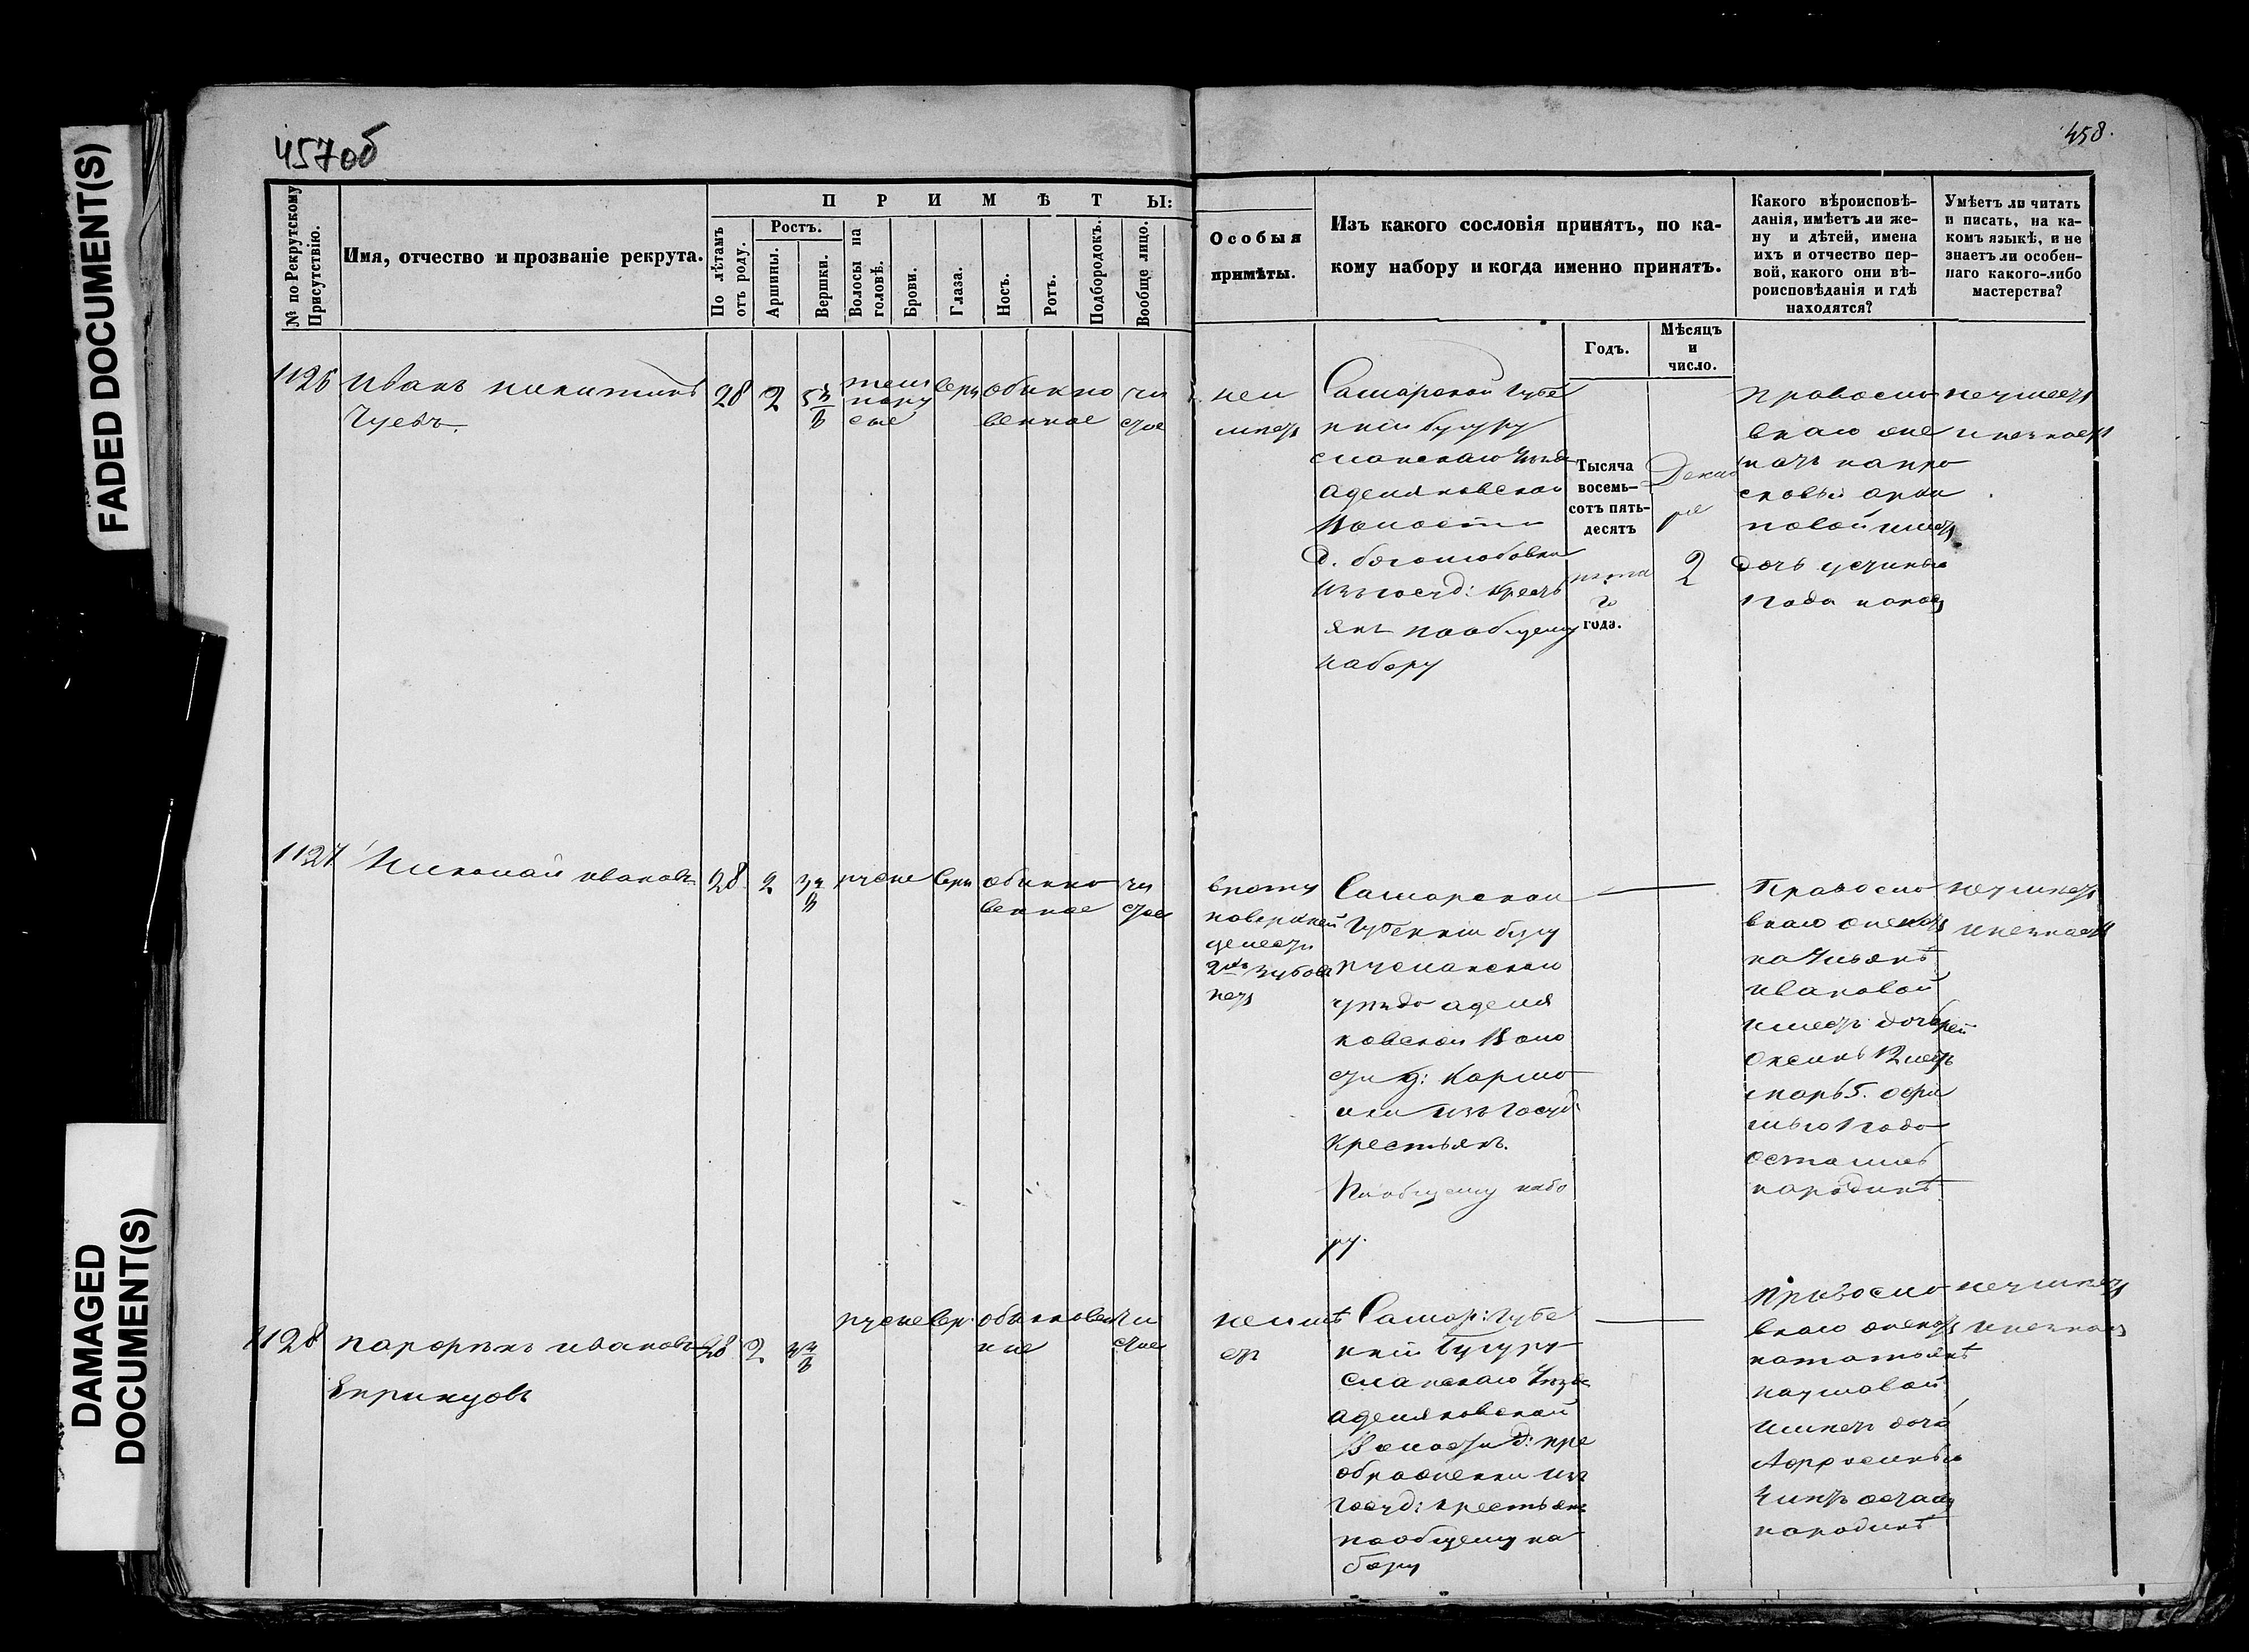 FADED DOCUMENT(S)
DAMAGED
DOCUMENT(S)
457об
458.
№ по Рекрутскому
Присутствію.
Имя, отчество и прозваніе рекрута.
ПРИМѢТЫ:
По лѣтамъ
отъ роду.
Ростъ.
Аршины.
Вершки.
Волосы на
головѣ.
Брови.
Глаза.
Носъ.
Ротъ.
Подбородокъ.
Вообще лицо.
Особыя
примѣты.
Изъ какого сословія принятъ, по ка-
кому набору и когда именно принятъ.
Годъ.
Мѣсяцъ
и
число.
Какого вѣроисповѣ-
данія, имѣетъ ли же-
ну и дѣтей, имена
ихъ и отчество пер-
вой, какого они вѣ-
роисповѣданія и гдѣ
находятся?
Умѣетъ ли читать
и писать, на ка-
комъ языкѣ, и не
знаетъ ли особен-
наго какого-либо
мастерства?
1126
Иванъ никитинъ
Чуевъ.
28
2
темн
нору
сые
серы
обыкно
венное
чи
стое
неи
меетъ
Самарской Губе
ніи бугуру
сланскаго уезда
аделяковской
Волости
д. боголюбовки
изъ госуд: крест
янъ пообщему
набору
Тысяча
восемь-
сотъ пять-
десятъ
пята
го
года.
Декаб
ря
2
православ
наго
женатъ
новой имеетъ
дочь устинью
1 года
неумеетъ
и незнаетъ
1127
Николай ивановъ
28
2
русые
серы
обыкно
венное
чи
стое
Самарской
Губерніи бугу
русланскаго
уезда аделя
ковской Воло
сти д: Кармо
лки изъ Госуд:
Крестьянъ.
Пообщему набо
ру.
Православ
наго женатъ
на Ульянѣ
ивановой
имеетъ дочерей
остались
народинѣ
неумеетъ
и незнаетъ
1128
ивановъ
28
2
русые
сер.
обыкновен
ное
чи
стое
неимѣ
етъ
Самар: Губе
ніи Бугуру
сланскаго Уезда
аделяковской
Волости д: пре
ображенки изъ
Госуд: крестьянъ
пообщему на
бору
Православ
наго женатъ
на татьянѣ
наумовой
имеетъ дочь
народинѣ
неумеетъ
и незнаетъ